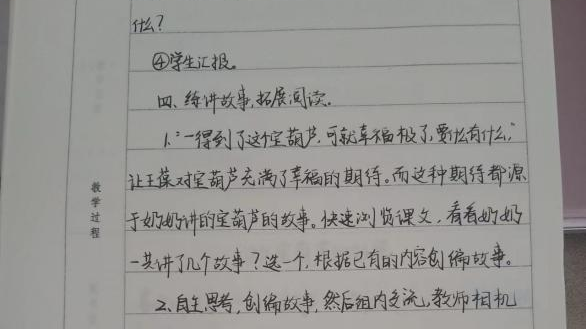 什么?
④学生汇报。
四、练讲故事,拓展阅读。
1."一得到了这个宝葫芦,可就幸福极了,要什么有什么,"
让王葆对宝葫芦充满了幸福的期待。而这种期待都源
于奶奶讲的宝葫芦的故事。快速浏览课文,看看奶奶
一共讲了几个故事?选一个,根据已有的内容创编故事。
2、自主思考,创编故事,然后组内交流,教师相机
教学过程